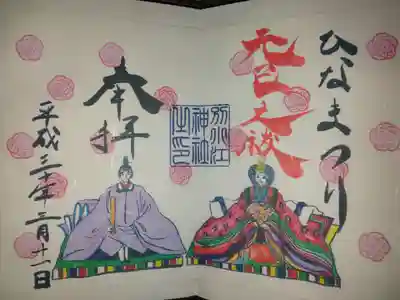 ひなまつり
別小江
神社
之印
奉拝
平成三十年二月十一日